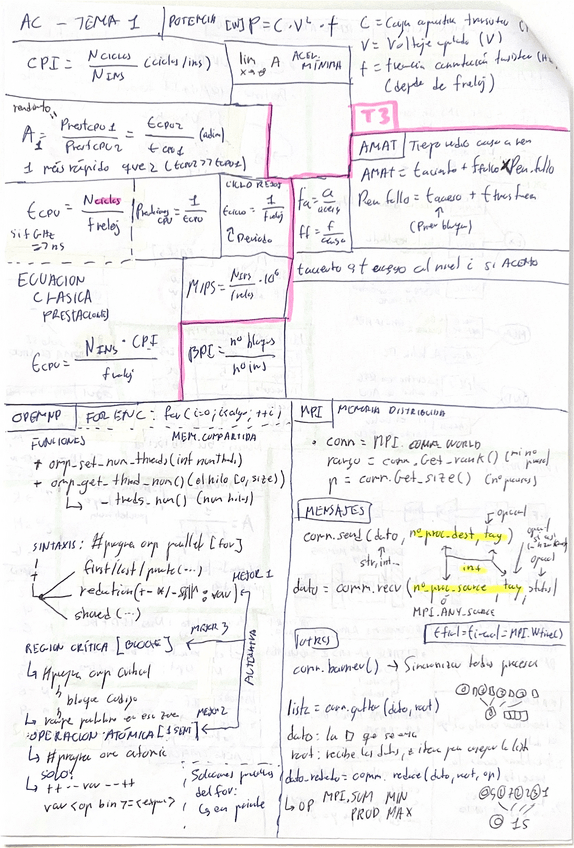 AC - TEMA 1
POTENCIA [W] P = C · V² · f
C = Carga capacitiva transistor
V = Voltaje aplicado (V)
f = frecuencia conmutación transistor
(depde de freloj)
CPI = Nciclos / NINS (ciclos/ins)
lim x→∞ A ACEL. MÍNIMA
A = Prestcpu1 / Prestcpu2 = tcpu2 / tcpu1 (adim)
1 más rápido que 2 (tcpu2 >> tcpu1)
T3
AMAT Tiempo medio acceso a mem
AMAT = tacierto + ffallo × Pen.fallo
Pen fallo = tacceso + ttransfer
(Primer bloque)
tcpu = Nciclos / freloj
si f GHz
=> ns
Prestaciones CPU = 1 / tcpu
CICLO RELOJ
tciclo = 1 / freloj
↑ Periodo
fa = a / acces
ff = f / acces
tacierto → t acceso al nivel i si ACIERTO
ECUACION
CLASICA
PRESTACIONES
tcpu = NINS · CPI / freloj
MIPS = NINS / freloj · 10⁶
BPI = nº bloques / nº ins
OPENMP
FOR EN C: for (i=0; i<algo; ++i)
FUNCIONES
MEM. COMPARTIDA
+ omp-set-num-threds(int numThds)
+ omp-get-thred-num() (el hilo [0, size))
↳ - threds-num() (num hilos)
SINTAXIS: #pragma omp parallel [for]
first/last/private(...)
reduction(+ - * / - && || : var)
shared (...)
MEJOR 1
REGION CRÍTICA [BLOQUE]
MEJOR 3
↳ #pragma omp critical
bloque codigo
OPERACION ATÓMICA [1 SENT]
MEJOR 2
↳ #pragma omp atomic
SOLO:
↳ ++ -- var -- ++
var <op bin>= <expr>
Soluciones
del for:
MPI
MEMORIA DISTRIBUIDA
• comm = MPI.COMM_WORLD
rango = comm.Get_rank() (mi nº proceso)
p = comm.Get_size() (nº procesos)
MENSAJES
opcional
comm.send(dato, nº proc_dest, tag)
str, int...
int
opcional
dato = comm.recv(nº proc_source, tag, status)
MPI.ANY_SOURCE
OTRAS
tfinal - tinicial = MPI.Wtime()
comm.barrier() → Sincronizar todos procesos
lista = comm.gather(dato, root)
dato: la D que se envia
root: recibe los datos, z tiene para asegurar la lista
dato_reducido = comm.reduce(dato, root, op)
↳ OP MPI.SUM MIN
PROD MAX
15